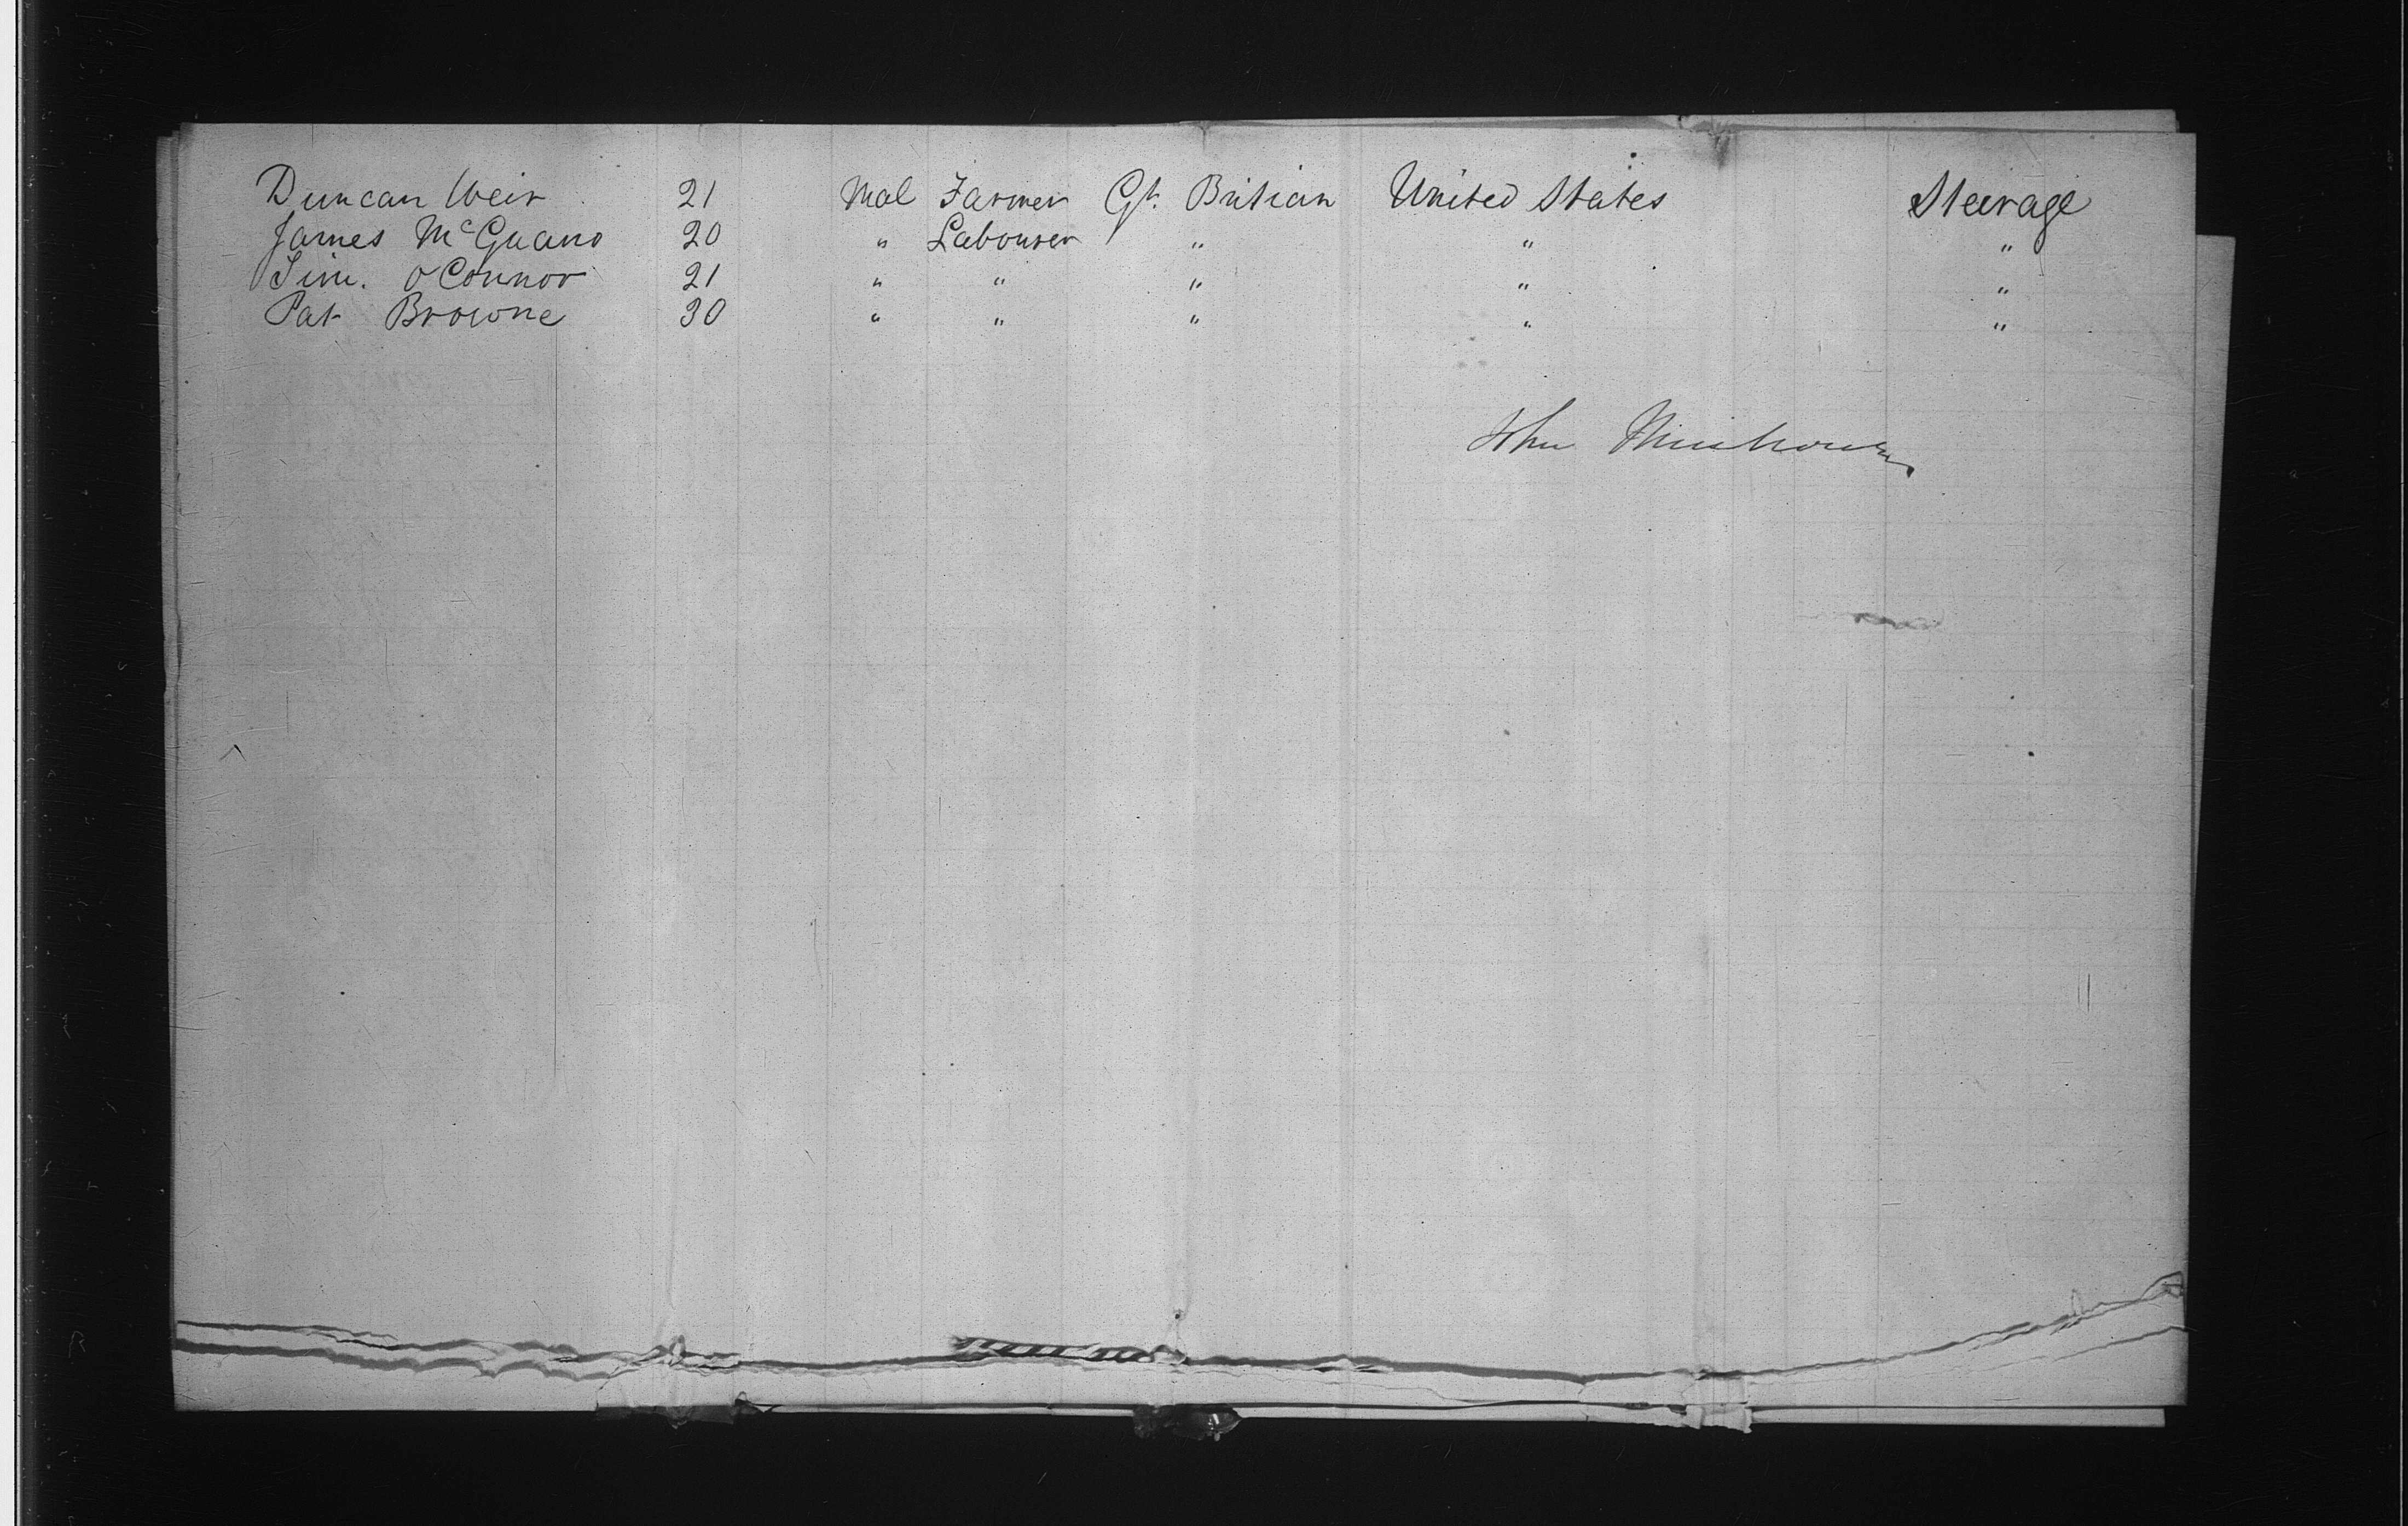 Duncan Weir 21 Mal Farmer Gt. Britian United States Steerage
James McGuano 20 " Labourer " " "
Tim. O'Connor 21 " " " " "
Pat Browne 30 " " " " "
John